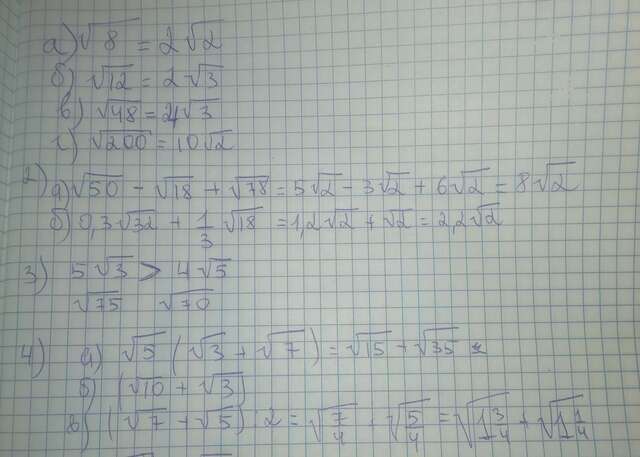 а) √8 = 2√2
б) √12 = 2√3
в) √48 = 4√3
г) √200 = 10√2
2) а) √50 - √18 + √78 = 5√2 - 3√2 + 6√2 = 8√2
б) 0,3√32 + 1/3 √18 = 1,2√2 + √2 = 2,2√2
3) 5√3 > 4√5
√75 √70
4) а) √5 (√3 + √7) = √15 + √35
б) (√10 + √3)
в) (√7 + √5) : 2 = √7/4 + √5/4 = √1 3/4 + √1 1/4